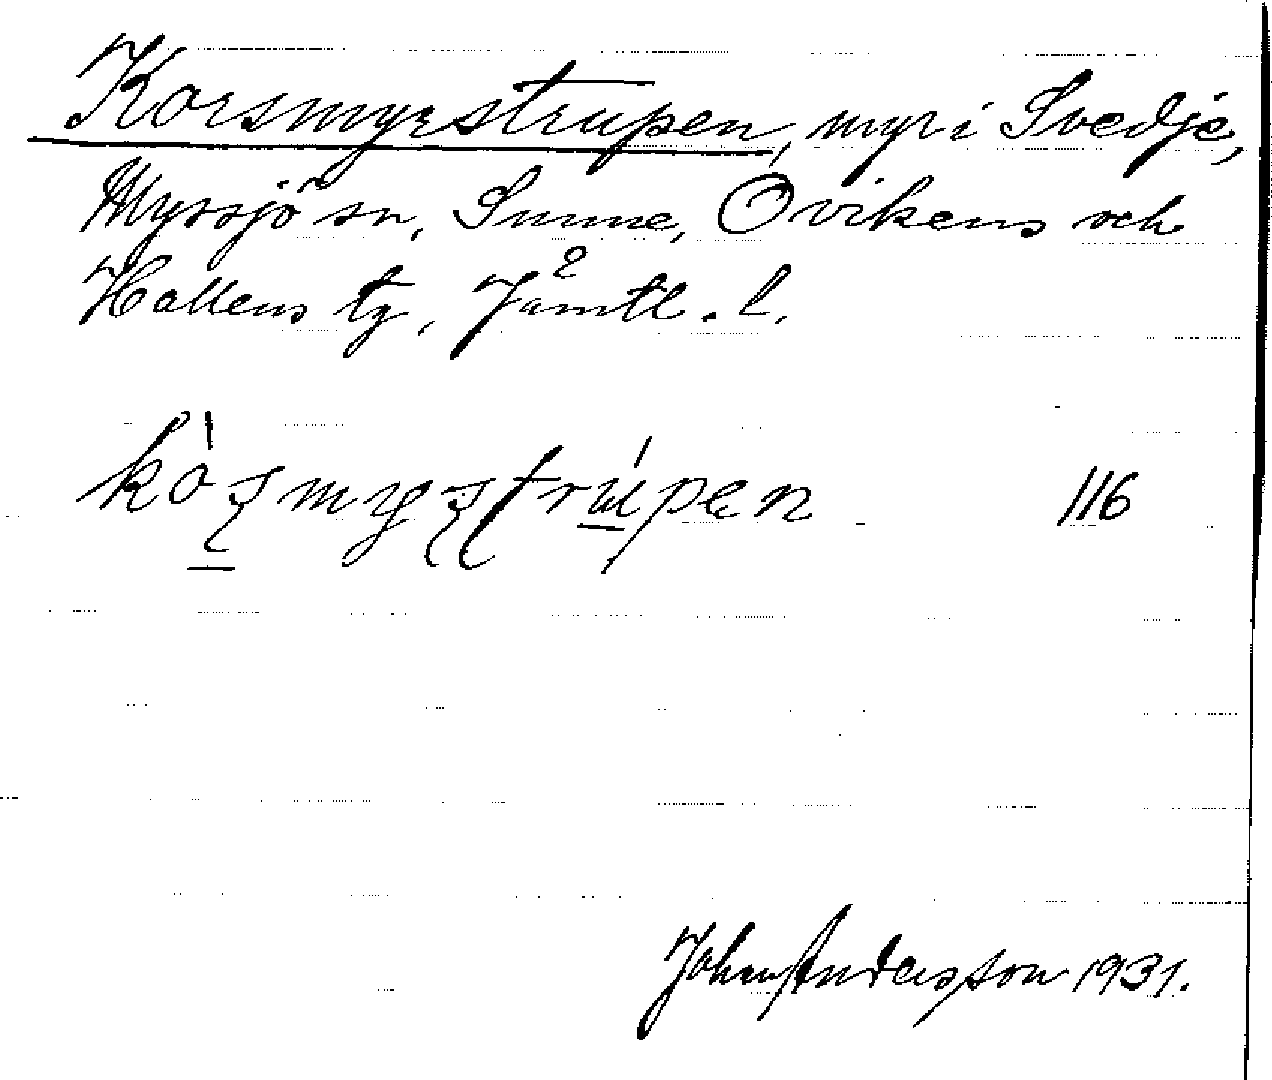 Korsmyrstrupen, myr i Svedje,
Myssjö sn, Sunne, Ovikens och
Hallens tg, Jämtl. l.
116
Johan Andersson 1931.